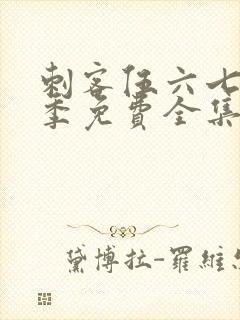 刺客伍六七
季免費全集
黛博拉-羅維